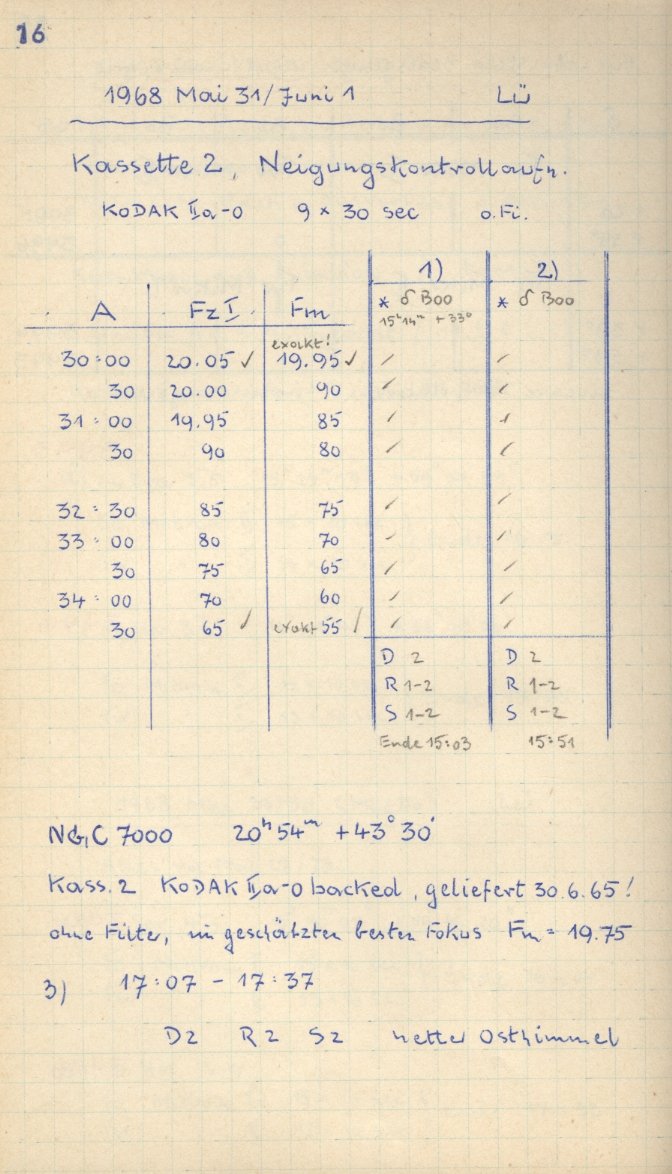 16
1968 Mai 31/Juni 1 Lü
Kassette 2, Neigungskontrollaufn.
KODAK IIa-O 9 × 30 sec o.Fi.
1) 2)
A Fz I Fm * δ Boo * δ Boo
15h14m +33°
exakt!
30:00 20.05 ✓ 19.95 ✓ / /
30 20.00 90 / /
31:00 19.95 85 / /
30 90 80 / /
32:30 85 75 / /
33:00 80 70 / /
30 75 65 / /
34:00 70 60 / /
30 65 ✓ exakt 55 / / /
D 2 D 2
R 1-2 R 1-2
S 1-2 S 1-2
Ende 15:03 15:51
NGC 7000 20h54m +43°30'
Kass. 2 KODAK IIa-O backed, geliefert 30.6.65!
ohne Filter, im geschätzten besten Fokus Fm = 19.75
3) 17:07 - 17:37
D2 R2 S2 heller Osthimmel